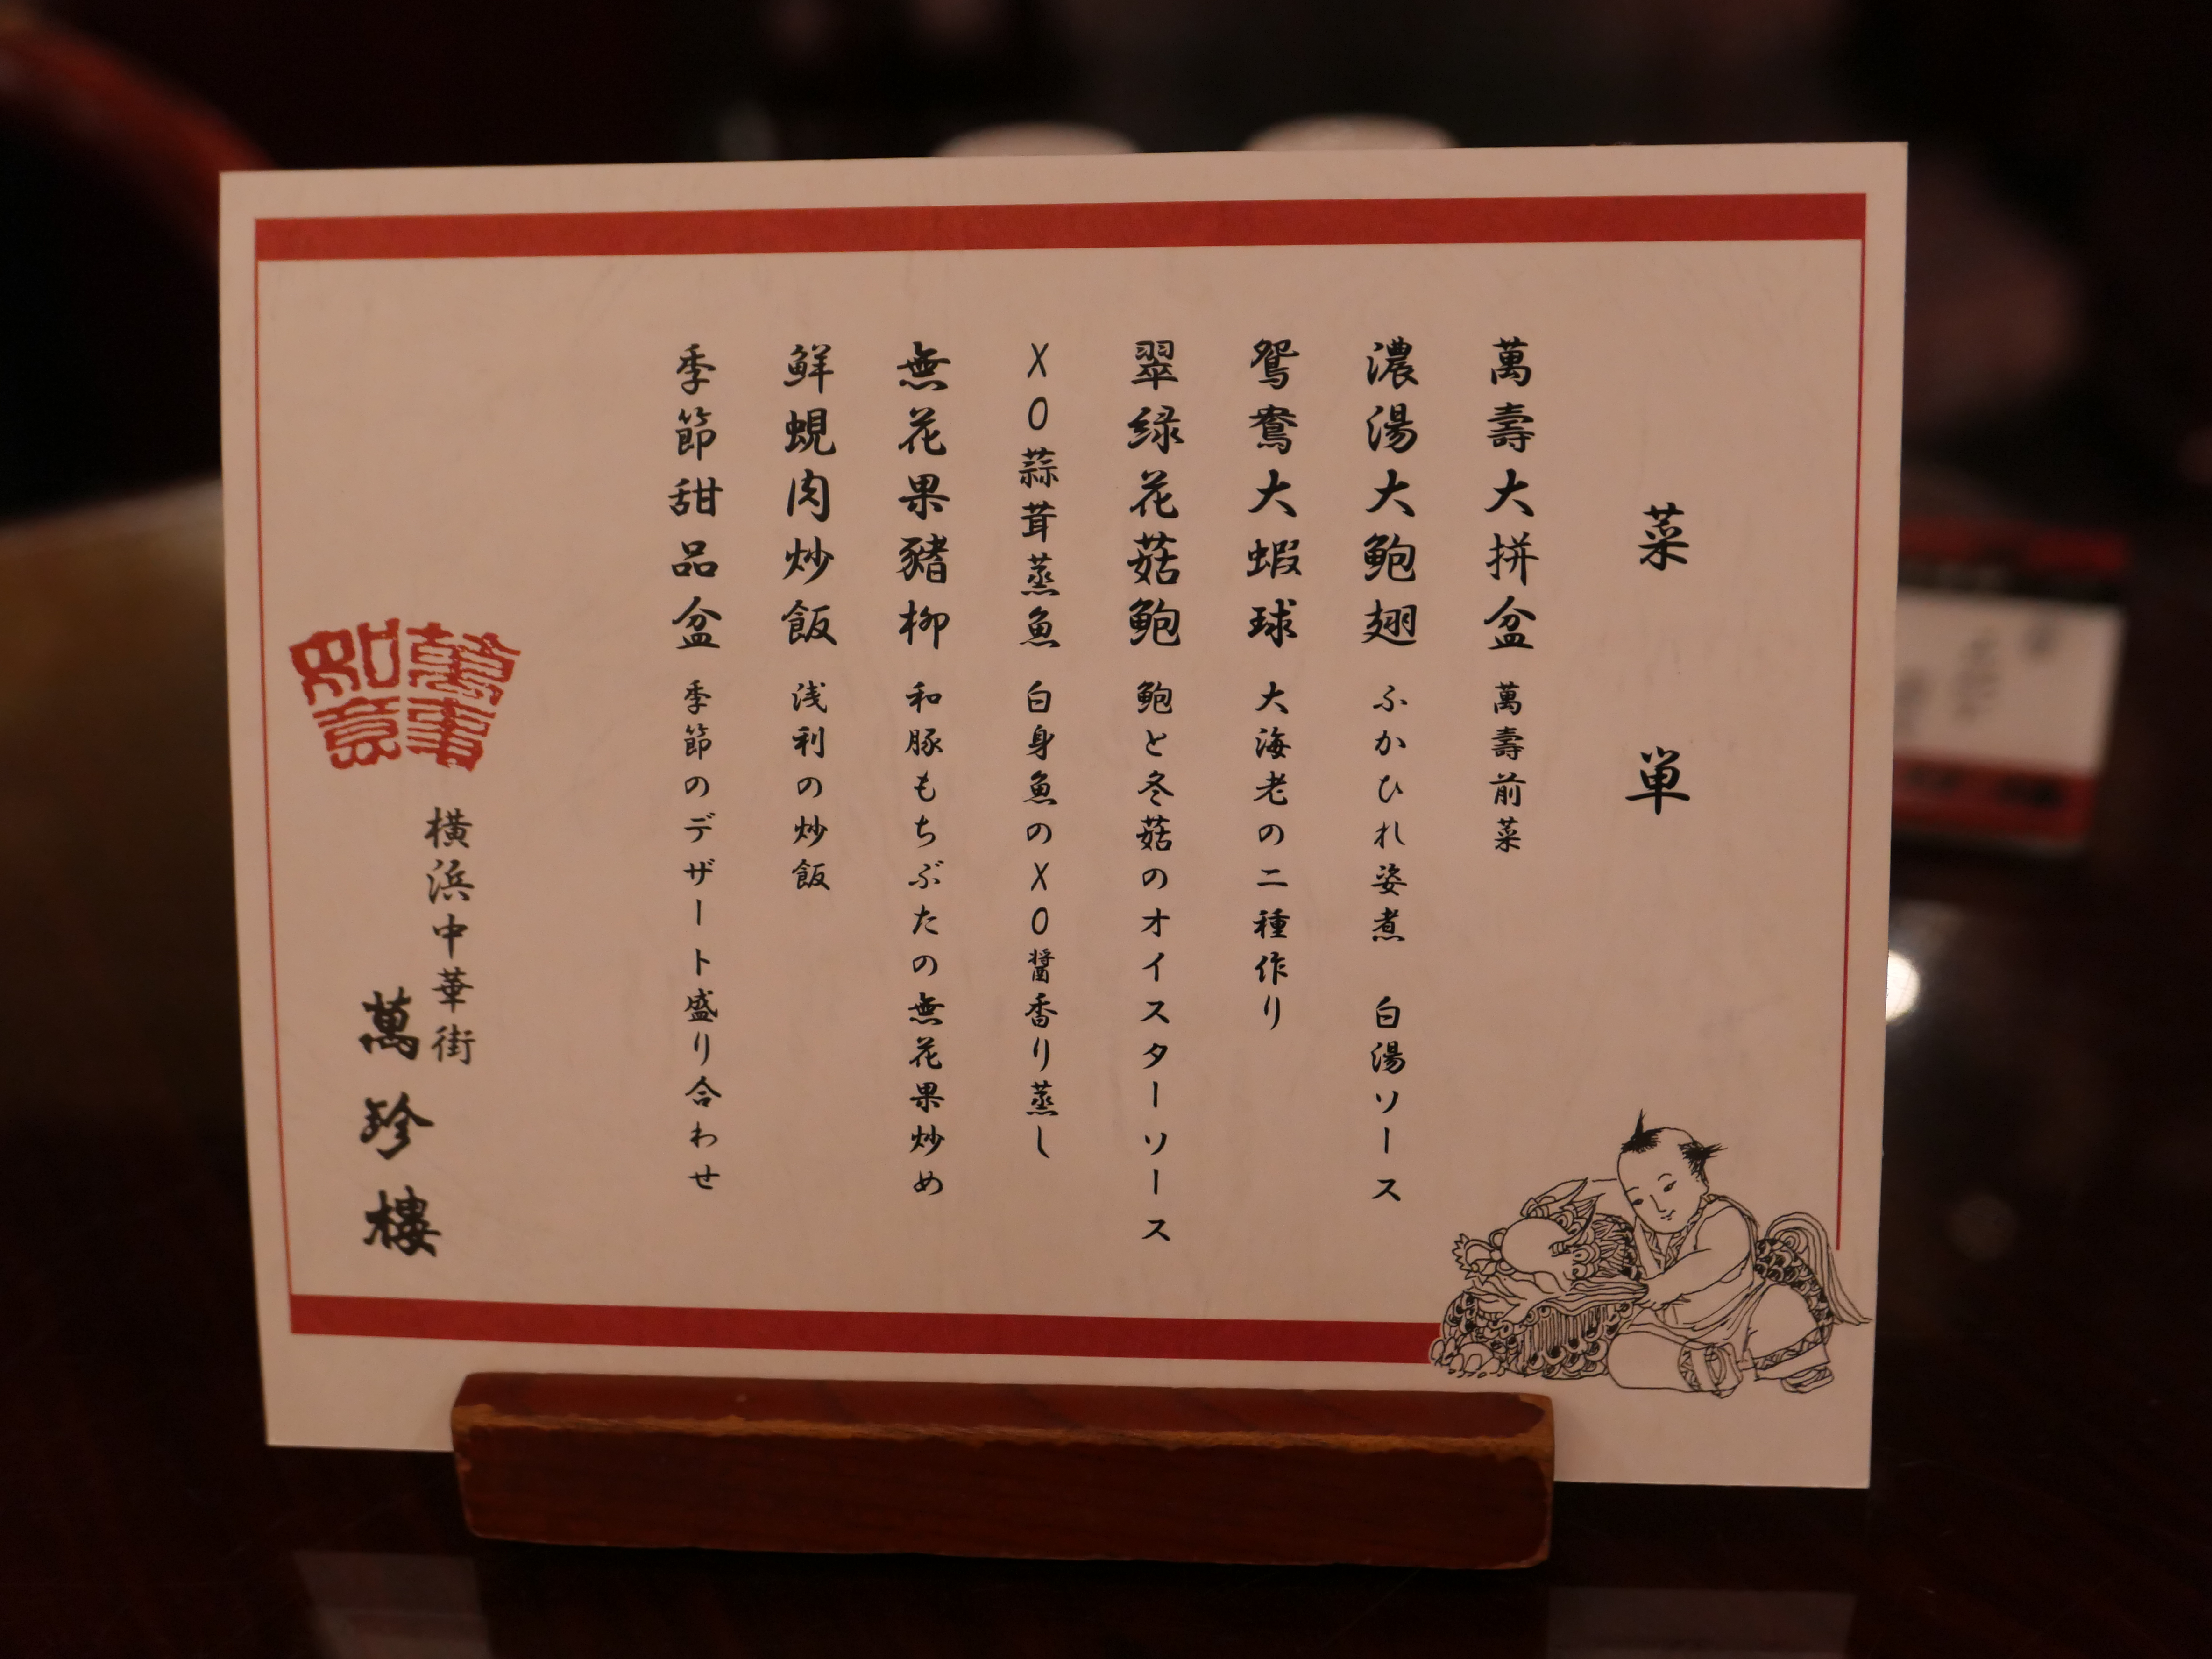 菜単
萬壽大拼盆 萬壽前菜
濃湯大鮑翅 ふかひれ姿煮 白湯ソース
鴛鴦大蝦球 大海老の二種作り
翠緑花菇鮑 鮑と冬菇のオイスターソース
XO蒜茸蒸魚 白身魚のXO醤香り蒸し
無花果豬柳 和豚もちぶたの無花果炒め
鮮蜆肉炒飯 浅利の炒飯
季節甜品盆 季節のデザート盛り合わせ
萬事如意
横浜中華街
萬珍樓